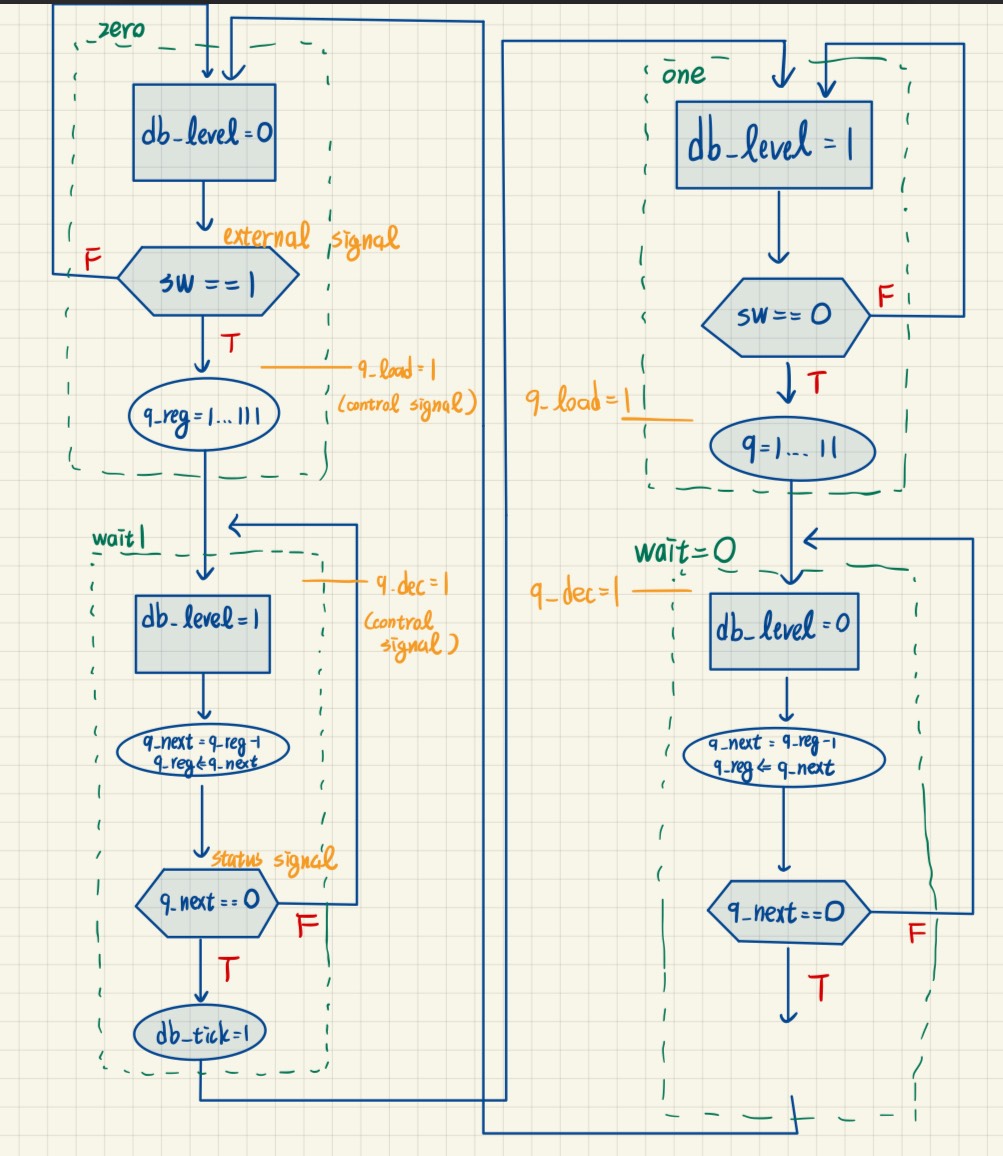 zero
db_level=0
external signal
F
sw == 1
T
q_load=1
(control signal)
q_reg=1...111
wait1
q_dec=1
(control
signal)
db_level=1
q_next = q_reg-1
q_reg⇐q_next
status signal
q_next == 0
F
T
db_tick=1
one
db_level = 1
sw== 0
F
T
q_load=1
q=1... 11
wait=0
q_dec=1
db_level=0
q_next = q_reg-1
q_reg ⇐ q_next
q_next==0
F
T